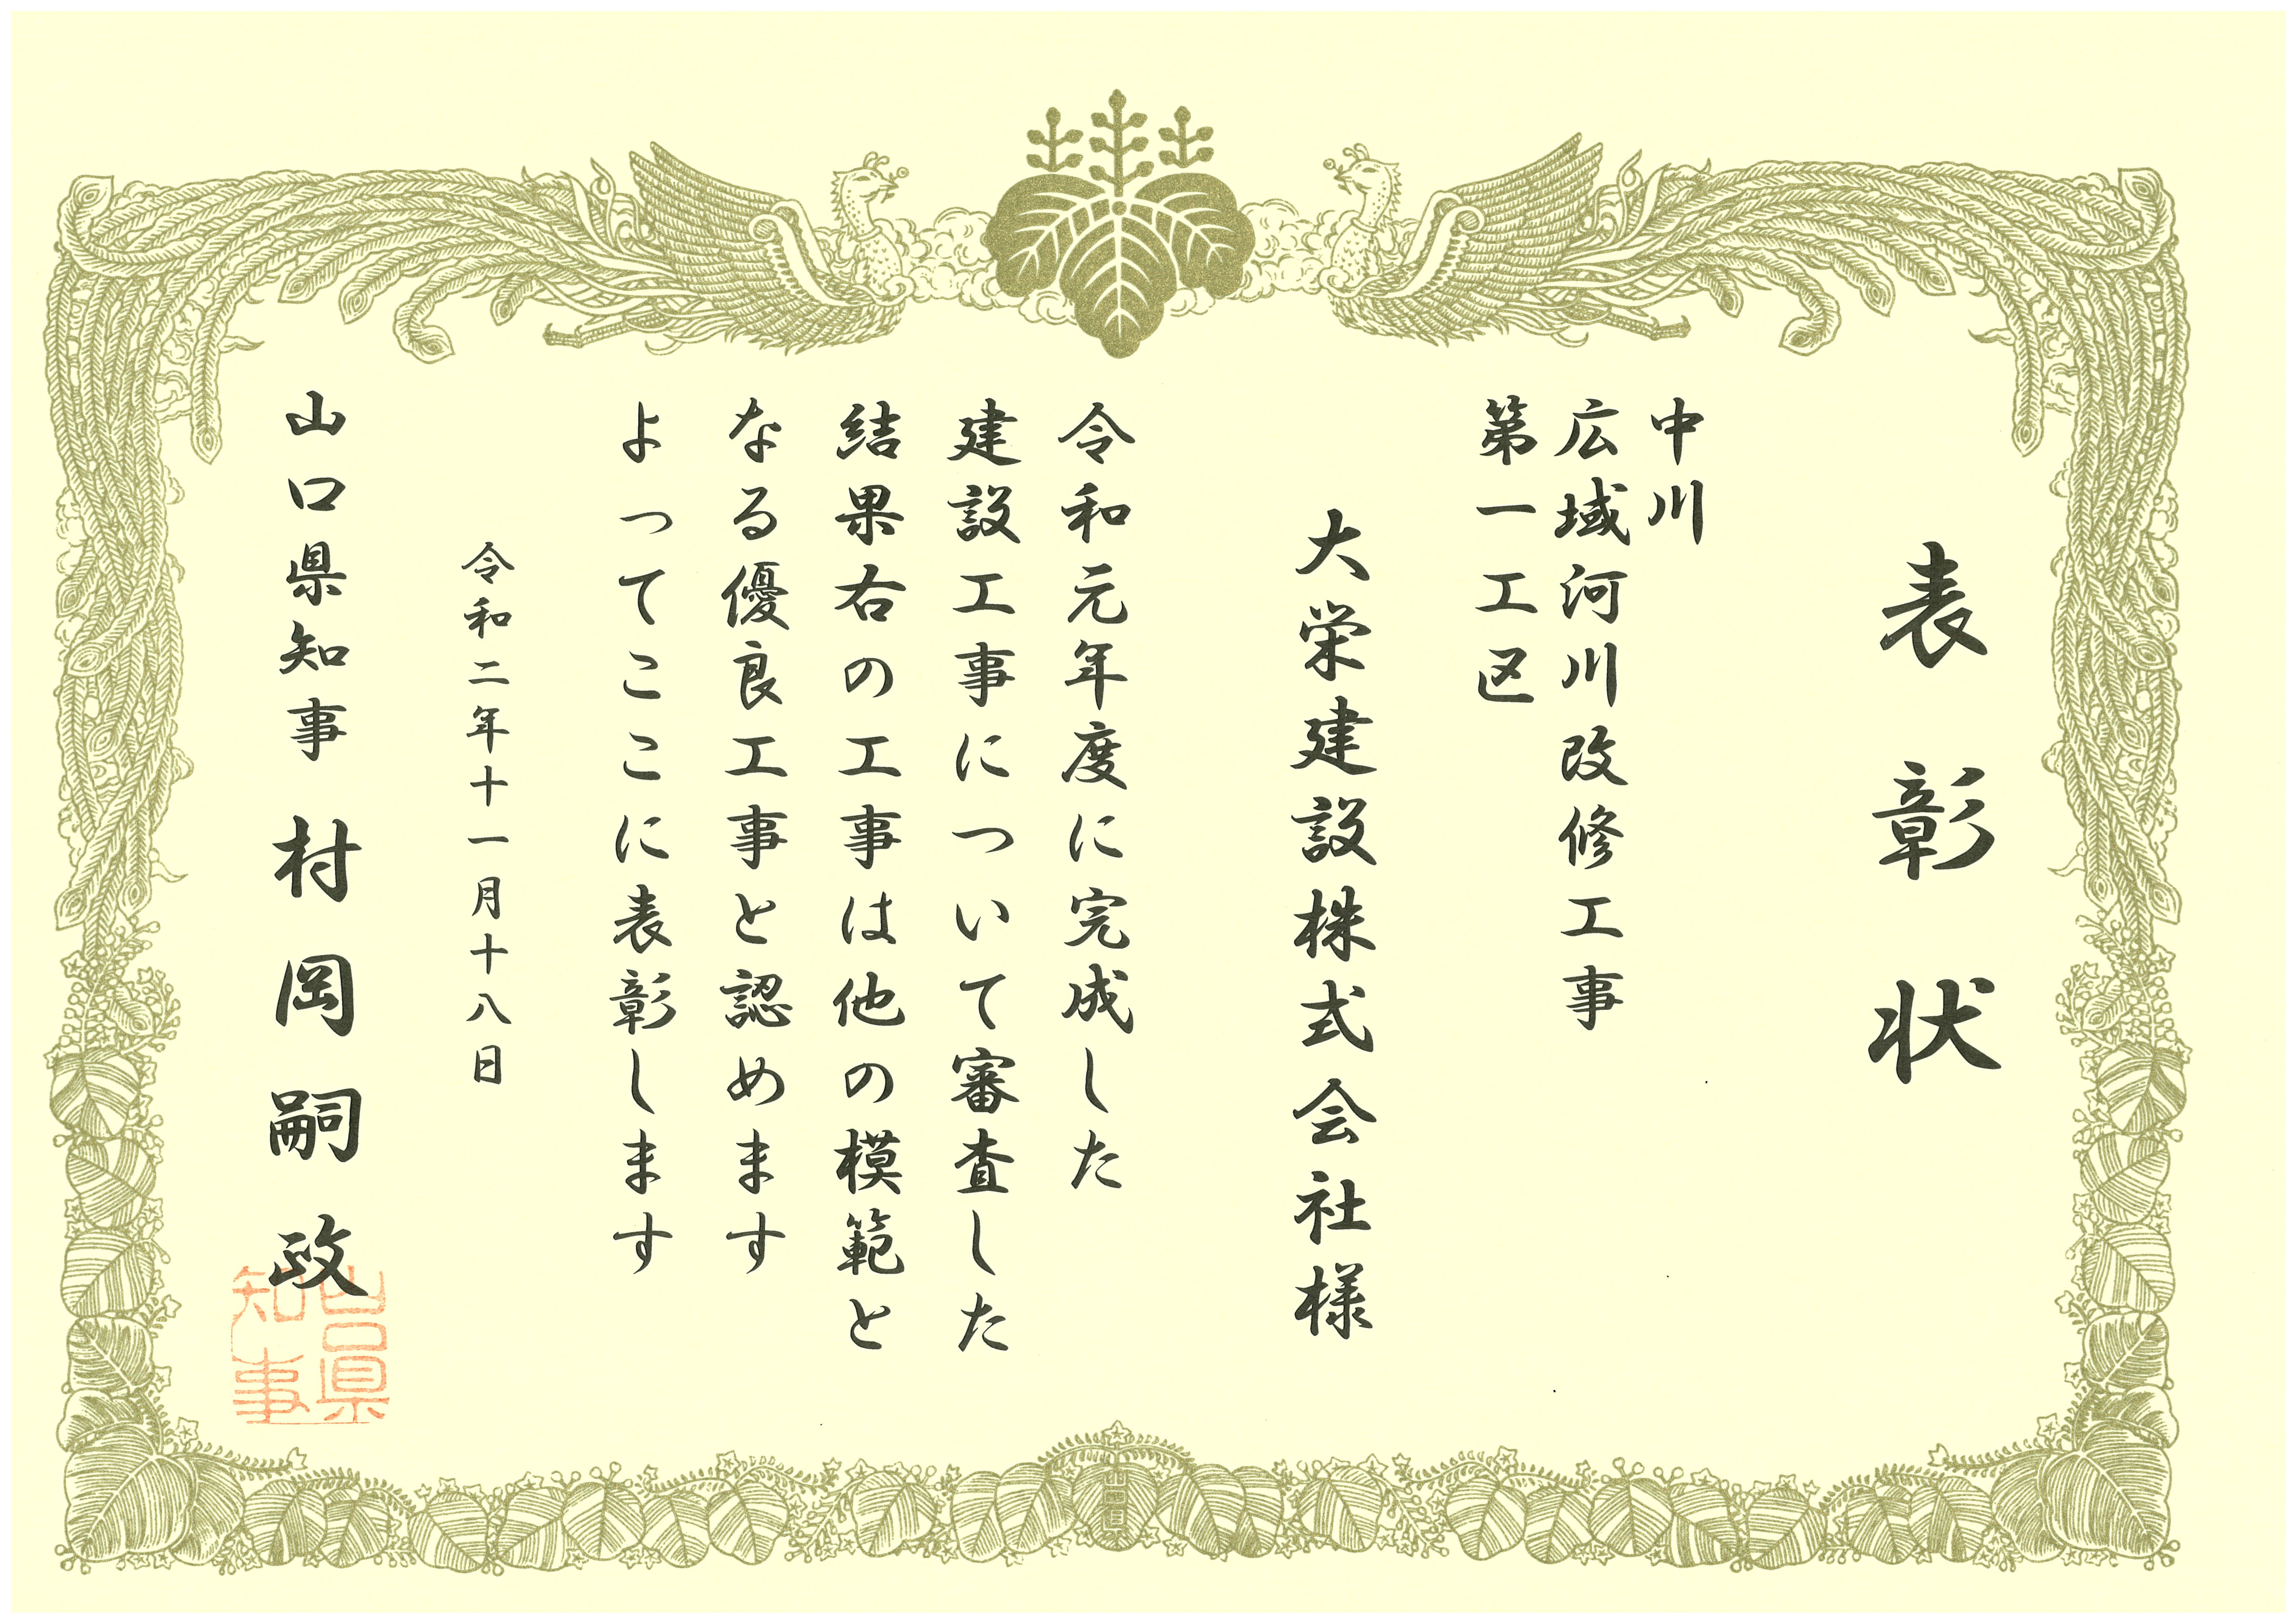 表彰状
中川
広域河川改修工事
第一工区
大栄建設株式会社様
令和元年度に完成した
建設工事について審査した
結果右の工事は他の模範と
なる優良工事と認めます
よってここに表彰します
令和二年十一月十八日
山口県知事 村岡嗣政
山口県
知事
山口県